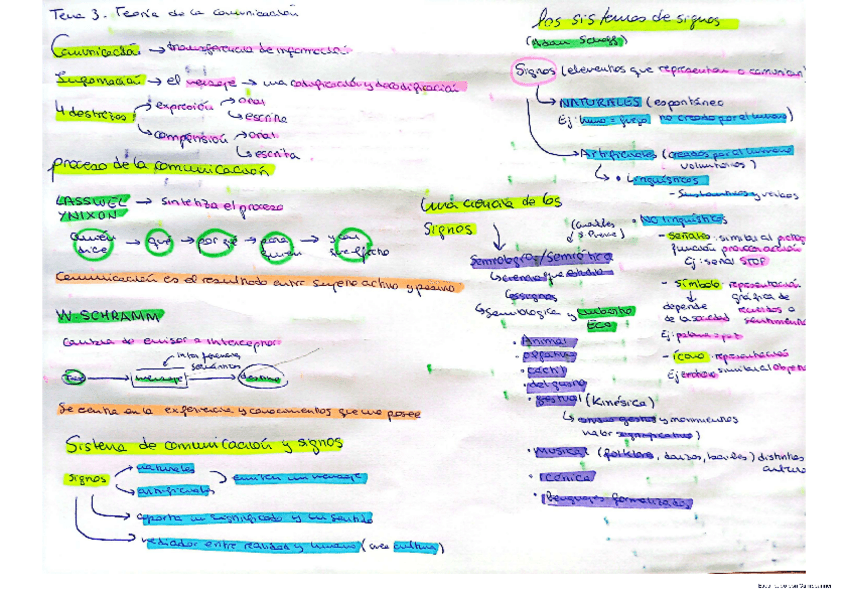 Tema 3. Teoría de la comunicación
Comunicación → transferencia de información
Información → el mensaje → una codificación y decodificación
4 destrezas → expresión → oral
→ escrita
→ comprensión → oral
→ escrita
proceso de la comunicación
LASSWEL Y NIXON → sintetiza el proceso
quién dice → qué → por qué → para quién → y con qué efecto
Comunicación es el resultado entre sujeto activo y pasivo
W. SCHRAMM
Cambia de emisor a interceptor
interferencias semánticas
mensaje → destino
Se centra en la experiencia y conocimientos que uno posee
Sistema de comunicación y signos
signos → naturales
→ artificiales
emiten un mensaje
→ aporta un significado y un sentido
→ mediador entre realidad y humano (crea cultura)
Una ciencia de los
Signos
Semiología/semiótica
→ Semiológica y Umberto Eco
· Animal
· olfativa
· táctil
· del gusto
· gestual (Kinésica)
y movimientos
valor significativo)
· musical (folklore, danzas, bailes) distintos
· icónica
· lenguajes formalizados
los sistemas de signos
(Adam Schaff)
Signos (elementos que representan o comunican
→ NATURALES (espontáneo
Ej: humo = fuego no creado por el humano)
→ Artificiales (creados por el humano
voluntarios)
→ · Lingüísticos
- Sustantivos y verbos
· NO lingüísticos
- señales: similar al
función
Ej: señal STOP
- símbolo: representación
gráfica de
depende de la sociedad
sentimiento
Ej: paloma = paz
- icono: representación
similar al objeto